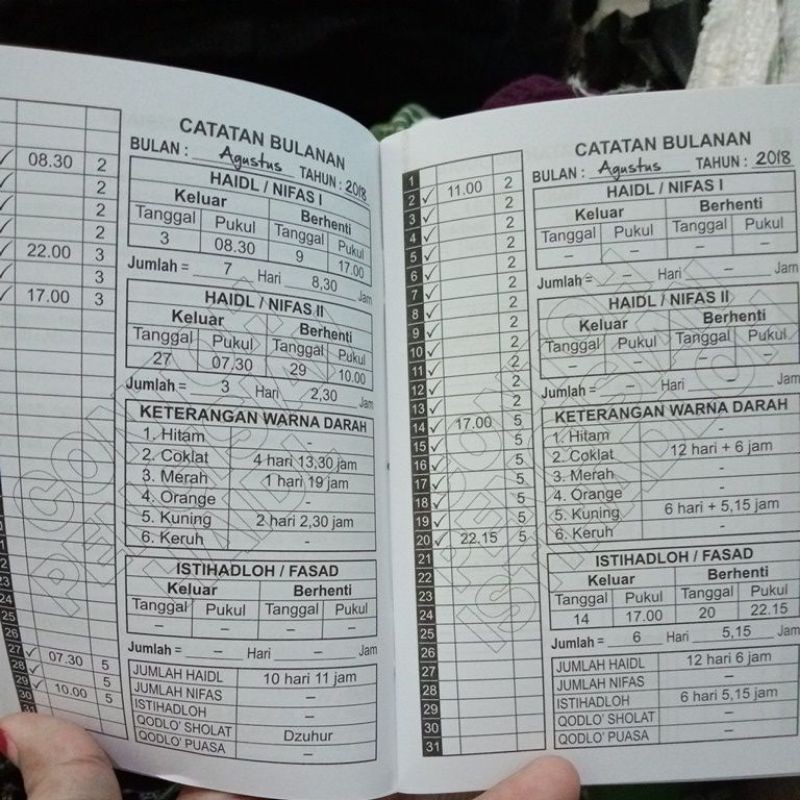 08.30 2
2
2
2
22.00 3
3
17.00 3
23
24
25
26
27 07.30 5
28 5
29 10.00 5
30
31
CATATAN BULANAN
BULAN : Agustus TAHUN : 2018
HAIDL / NIFAS I
Keluar Berhenti
Tanggal Pukul Tanggal Pukul
3 08.30 9 17.00
Jumlah = 7 Hari 8,30 Jam
HAIDL / NIFAS II
Keluar Berhenti
Tanggal Pukul Tanggal Pukul
27 07.30 29 10.00
Jumlah = 3 Hari 2,30 Jam
KETERANGAN WARNA DARAH
1. Hitam -
2. Coklat 4 hari 13,30 jam
3. Merah 1 hari 19 jam
4. Orange -
5. Kuning 2 hari 2,30 jam
6. Keruh -
ISTIHADLOH / FASAD
Keluar Berhenti
Tanggal Pukul Tanggal Pukul
- - - -
Jumlah = - Hari - Jam
JUMLAH HAIDL 10 hari 11 jam
JUMLAH NIFAS -
ISTIHADLOH -
QODLO' SHOLAT Dzuhur
QODLO' PUASA -
1
2 11.00 2
3 2
4 2
5 2
6 2
7 2
8 2
9 2
10 2
11 2
12 2
13 2
14 17.00 5
15 5
16 5
17 5
18 5
19 5
20 22.15 5
21
22
23
24
25
26
27
28
29
30
31
CATATAN BULANAN
BULAN : Agustus TAHUN : 2018
HAIDL / NIFAS I
Keluar Berhenti
Tanggal Pukul Tanggal Pukul
- - - -
Jumlah = - Hari - Jam
HAIDL / NIFAS II
Keluar Berhenti
Tanggal Pukul Tanggal Pukul
- - - -
Jumlah = - Hari - Jam
KETERANGAN WARNA DARAH
1. Hitam -
2. Coklat 12 hari + 6 jam
3. Merah -
4. Orange -
5. Kuning 6 hari + 5,15 jam
6. Keruh -
ISTIHADLOH / FASAD
Keluar Berhenti
Tanggal Pukul Tanggal Pukul
14 17.00 20 22.15
Jumlah = 6 Hari 5,15 Jam
JUMLAH HAIDL 12 hari 6 jam
JUMLAH NIFAS -
ISTIHADLOH 6 hari 5,15 jam
QODLO' SHOLAT -
QODLO' PUASA -